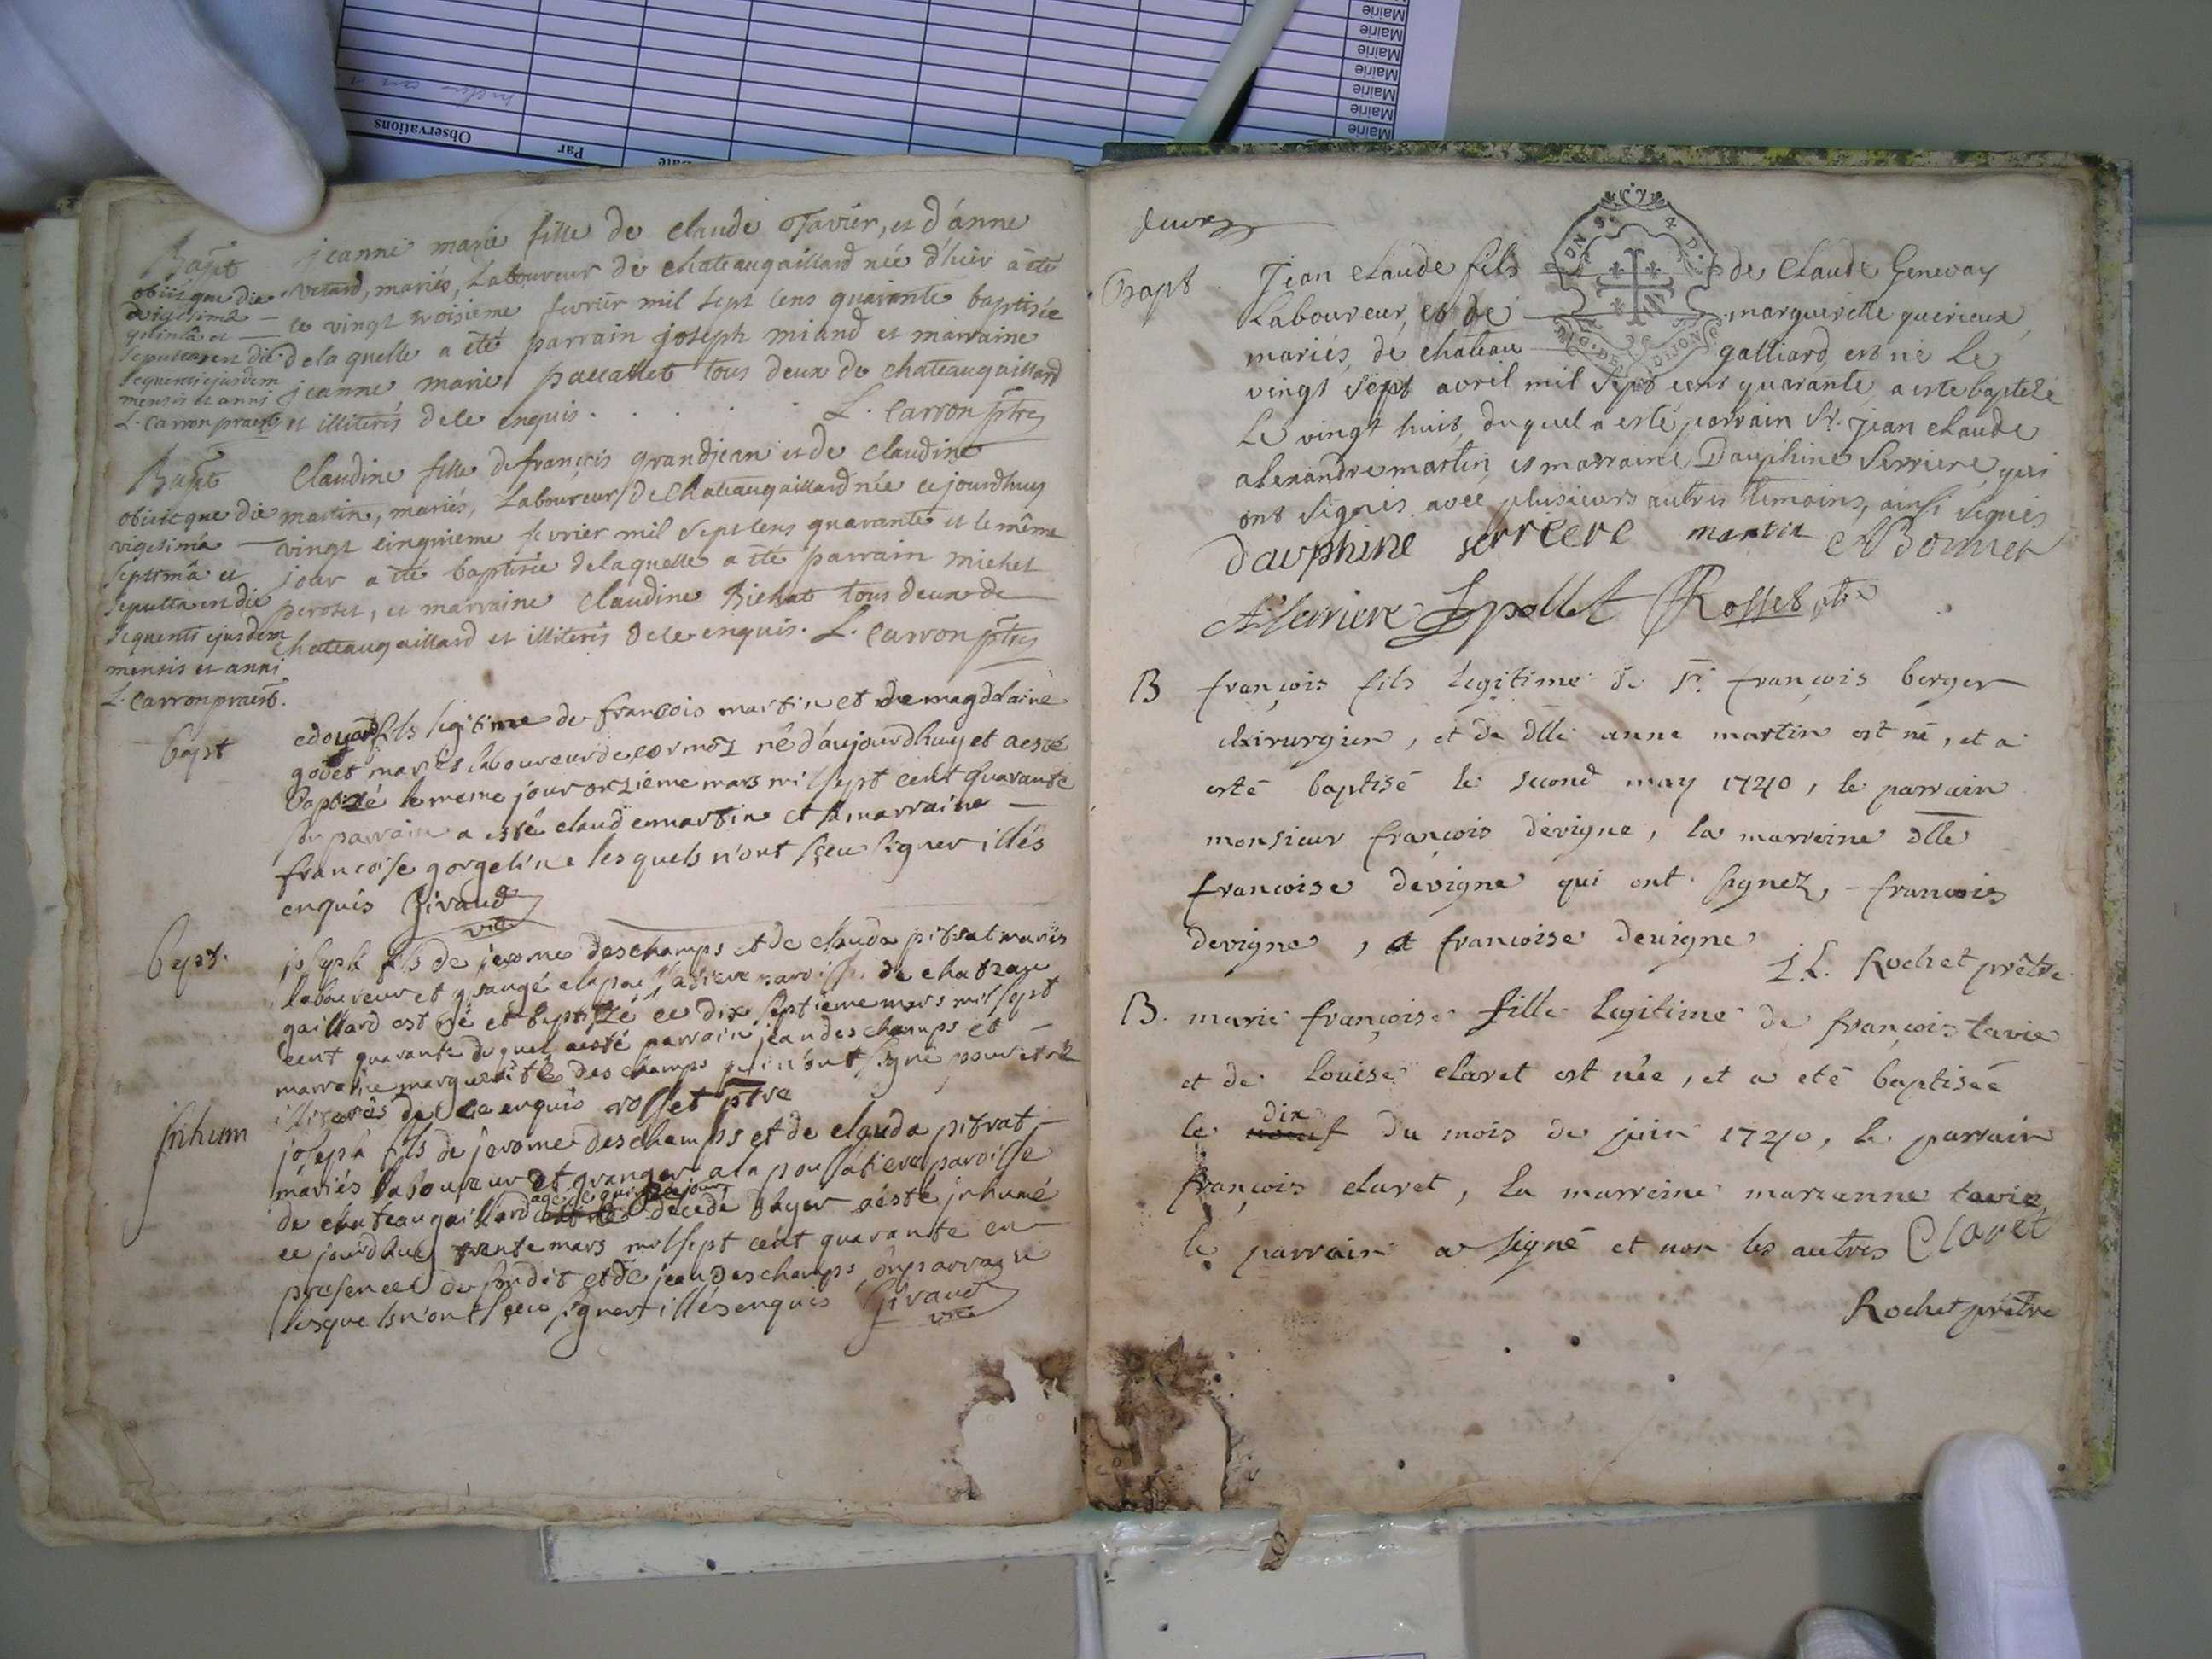 Mairie
Mairie
Mairie
Mairie
Mairie
Mairie
Mairie
Observations
Par
Date
Bapt
obiit que die
vigesima
quinta et
sepulta est die
sequenti ejusdem
mensis et anni
L. Carron praesb
jeanne marie fille de claude Tavier, et d'anne
vetard, mariés, Laboureur de chateaugaillard née d'hier a été
le vingt troisieme fevrier mil sept cens quarante baptisée
de laquelle a été parrain joseph miand et marraine
jeanne marie pacallet tous deux de chateaugaillard
et illiterés de ce enquis . . . . . L. Carron ptre
Bapt
obiit que die
vigesima
septima et
sepulta est die
sequenti ejusdem
mensis et anni
L. Carron praesb.
Claudine fille de françois grandjean et de claudine
martin, mariés, Laboureur de chateaugaillard née ce jourdhuy
vingt cinquieme fevrier mil sept cens quarante et le même
jour a été baptisée de laquelle a été parrain michel
perozet, et marraine Claudine Bichat tous deux de
chateaugaillard et illiterés de ce enquis. L. Carron ptre
bapt
edoyard fils legitime de francois martin et de magdelaine
godet mariés laboureur de cormoz né d'aujourdhuy et a esté
baptizé le meme jour onzieme mars mil sept cent quarante
son parrain a esté claude martin et sa marraine
francoise gorgeline lesquels n'ont sçeu signer illés
enquis Givaud
vic
bapt.
joseph fils de jerome deschamps et de clauda pitrat mariés
laboureur et grangé a la poussatiere paroisse de chateau
gaillard est né et baptizé ce dix septieme mars mil sept
cent quarante duquel a esté parrain jean deschamps et
marraine marguerite des champs qui n'ont signé pour etre
illiterés de ce enquis rosset ptre
inhum
joseph fils de jerome deschamps et de clauda pitrat
mariés laboureur et granger a la poussatiere paroisse
de chateaugaillard agé de quinze jours decedé d'hyer a esté inhumé
ce jourdhuy trente mars mil sept cent quarante en
presence du susdit et de jean deschamps son parrain
lesquels n'ont sçeu signer illés enquis Givaud
vic
ON S. 4 D.
G. DE DIJON
Bapt. Jean claude fils de claude Genevay
Laboureur, et de marguerite querieux
mariés, de chateau galliard, est né le
vingt sept avril mil sept cens quarante a este baptezé
Le vingt huit, duquel a esté parrain Sr. jean claude
alexandre martin, et marraine Dauphine Serriere, qui
ont signés avec plusieurs autres temoins, ainsi signés
dauphine serriere martin ABonnet
A Serriere Lpollet Rosset ptre
B françois fils legitime de Sr. françois berger
chirurgien, et de dlle anne martin est né, et a
esté baptisé le second may 1740, le parrain
monsieur françois devigne, la marreine dlle
francoise devigne qui ont signez, francois
devigne, et francoise devigne
J L. Rochet prêtre
B. marie françoise fille legitime de françois tavie
et de Louise claret est née, et a eté baptisée
dix
le neuf du mois de juin 1740, le parrain
françois claret, la marreine marianne tavie
le parrain a signé et non les autres Claret
Rochet prêtre